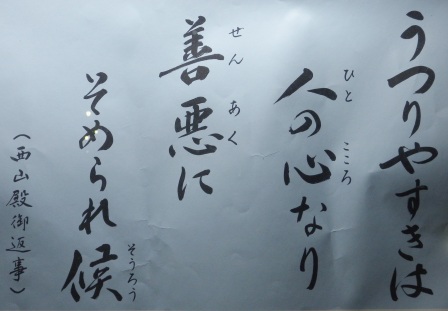 うつりやすきは
人の心なり
ひと こころ
善悪に
ぜん あく
そめられ候
そうろう
(西山殿御返事)